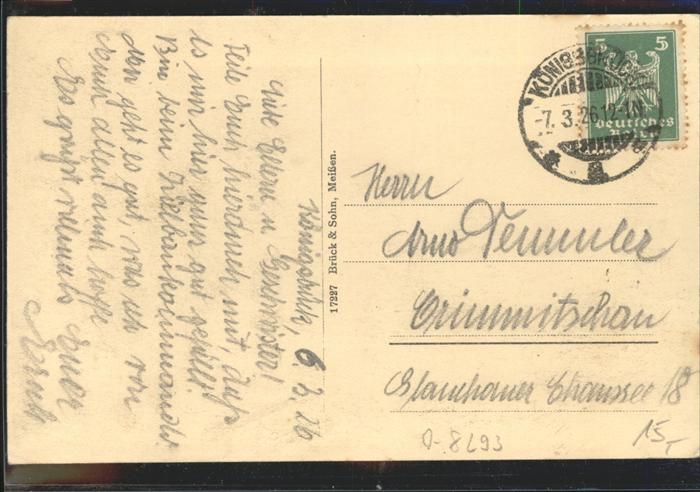 Königsbrück, 6.3.26
Liebe Eltern u. Geschwister!
Teile Euch hierdurch mit, daß
es mir hier ganz gut gefällt.
Bin beim
Mir geht es gut, was ich von
Euch allen auch hoffe
Es grüßt nochmals Euer
Ernst
17227 Brück & Sohn, Meißen.
5 5
Deutsches
Reich
KÖNIGSBRÜCK
-7.3.26.12-1N.
a
Herrn
Arno Temmler
Crimmitschau
Glauchauer Chaussee 18
D-8293
15,-